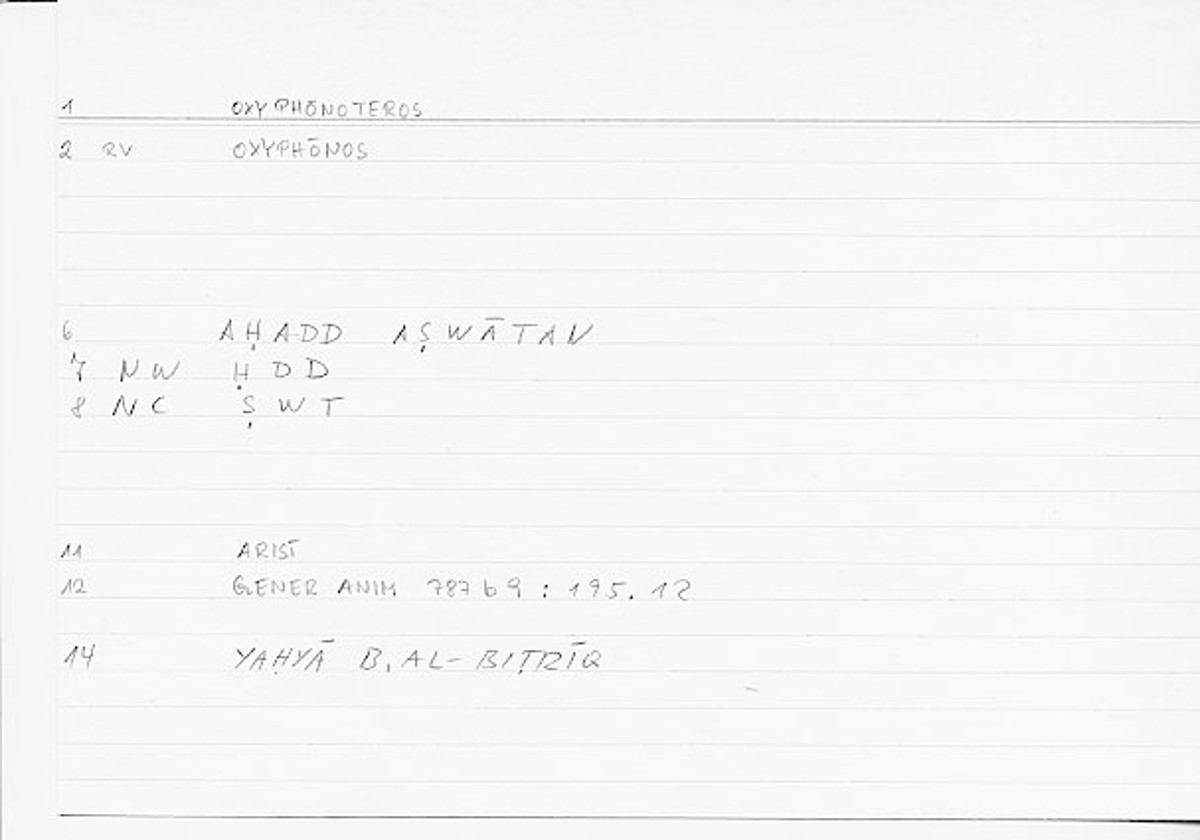 1 OXYPHŌNOTEROS
2 RV OXYPHŌNOS
6 AḤADD AṢWĀTAN
7 NW ḤDD
8 NC ṢWT
11 ARIST
12 GENER ANIM 787 b 9 : 195. 12
14 YAḤYĀ B. AL-BIṬRĪQ